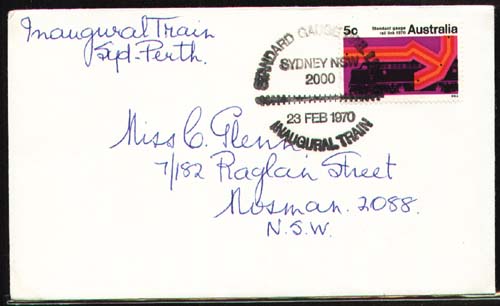 Inaugural Train
Syd-Perth.
5c
Standard gauge
rail link 1970
Australia
STANDARD GAUGE
SYDNEY NSW
2000
23 FEB 1970
INAUGURAL TRAIN
Miss C. Glenn
7/182 Raglan Street
Mosman. 2088.
N.S.W.